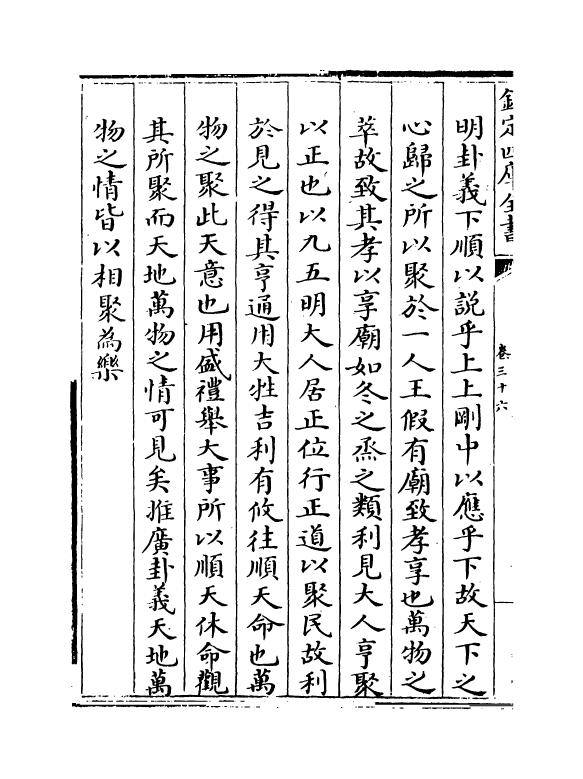 欽定四庫全書
卷三十六
明卦義下順以説乎上上剛中以應乎下故天下之
心歸之所以聚於一人王假有廟致孝享也萬物之
萃故致其孝以享廟如冬之烝之類利見大人亨聚
以正也以九五明大人居正位行正道以聚民故利
於見之得其亨通用大牲吉利有攸往順天命也萬
物之聚此天意也用盛禮舉大事所以順天休命觀
其所聚而天地萬物之情可見矣推廣卦義天地萬
物之情皆以相聚為樂